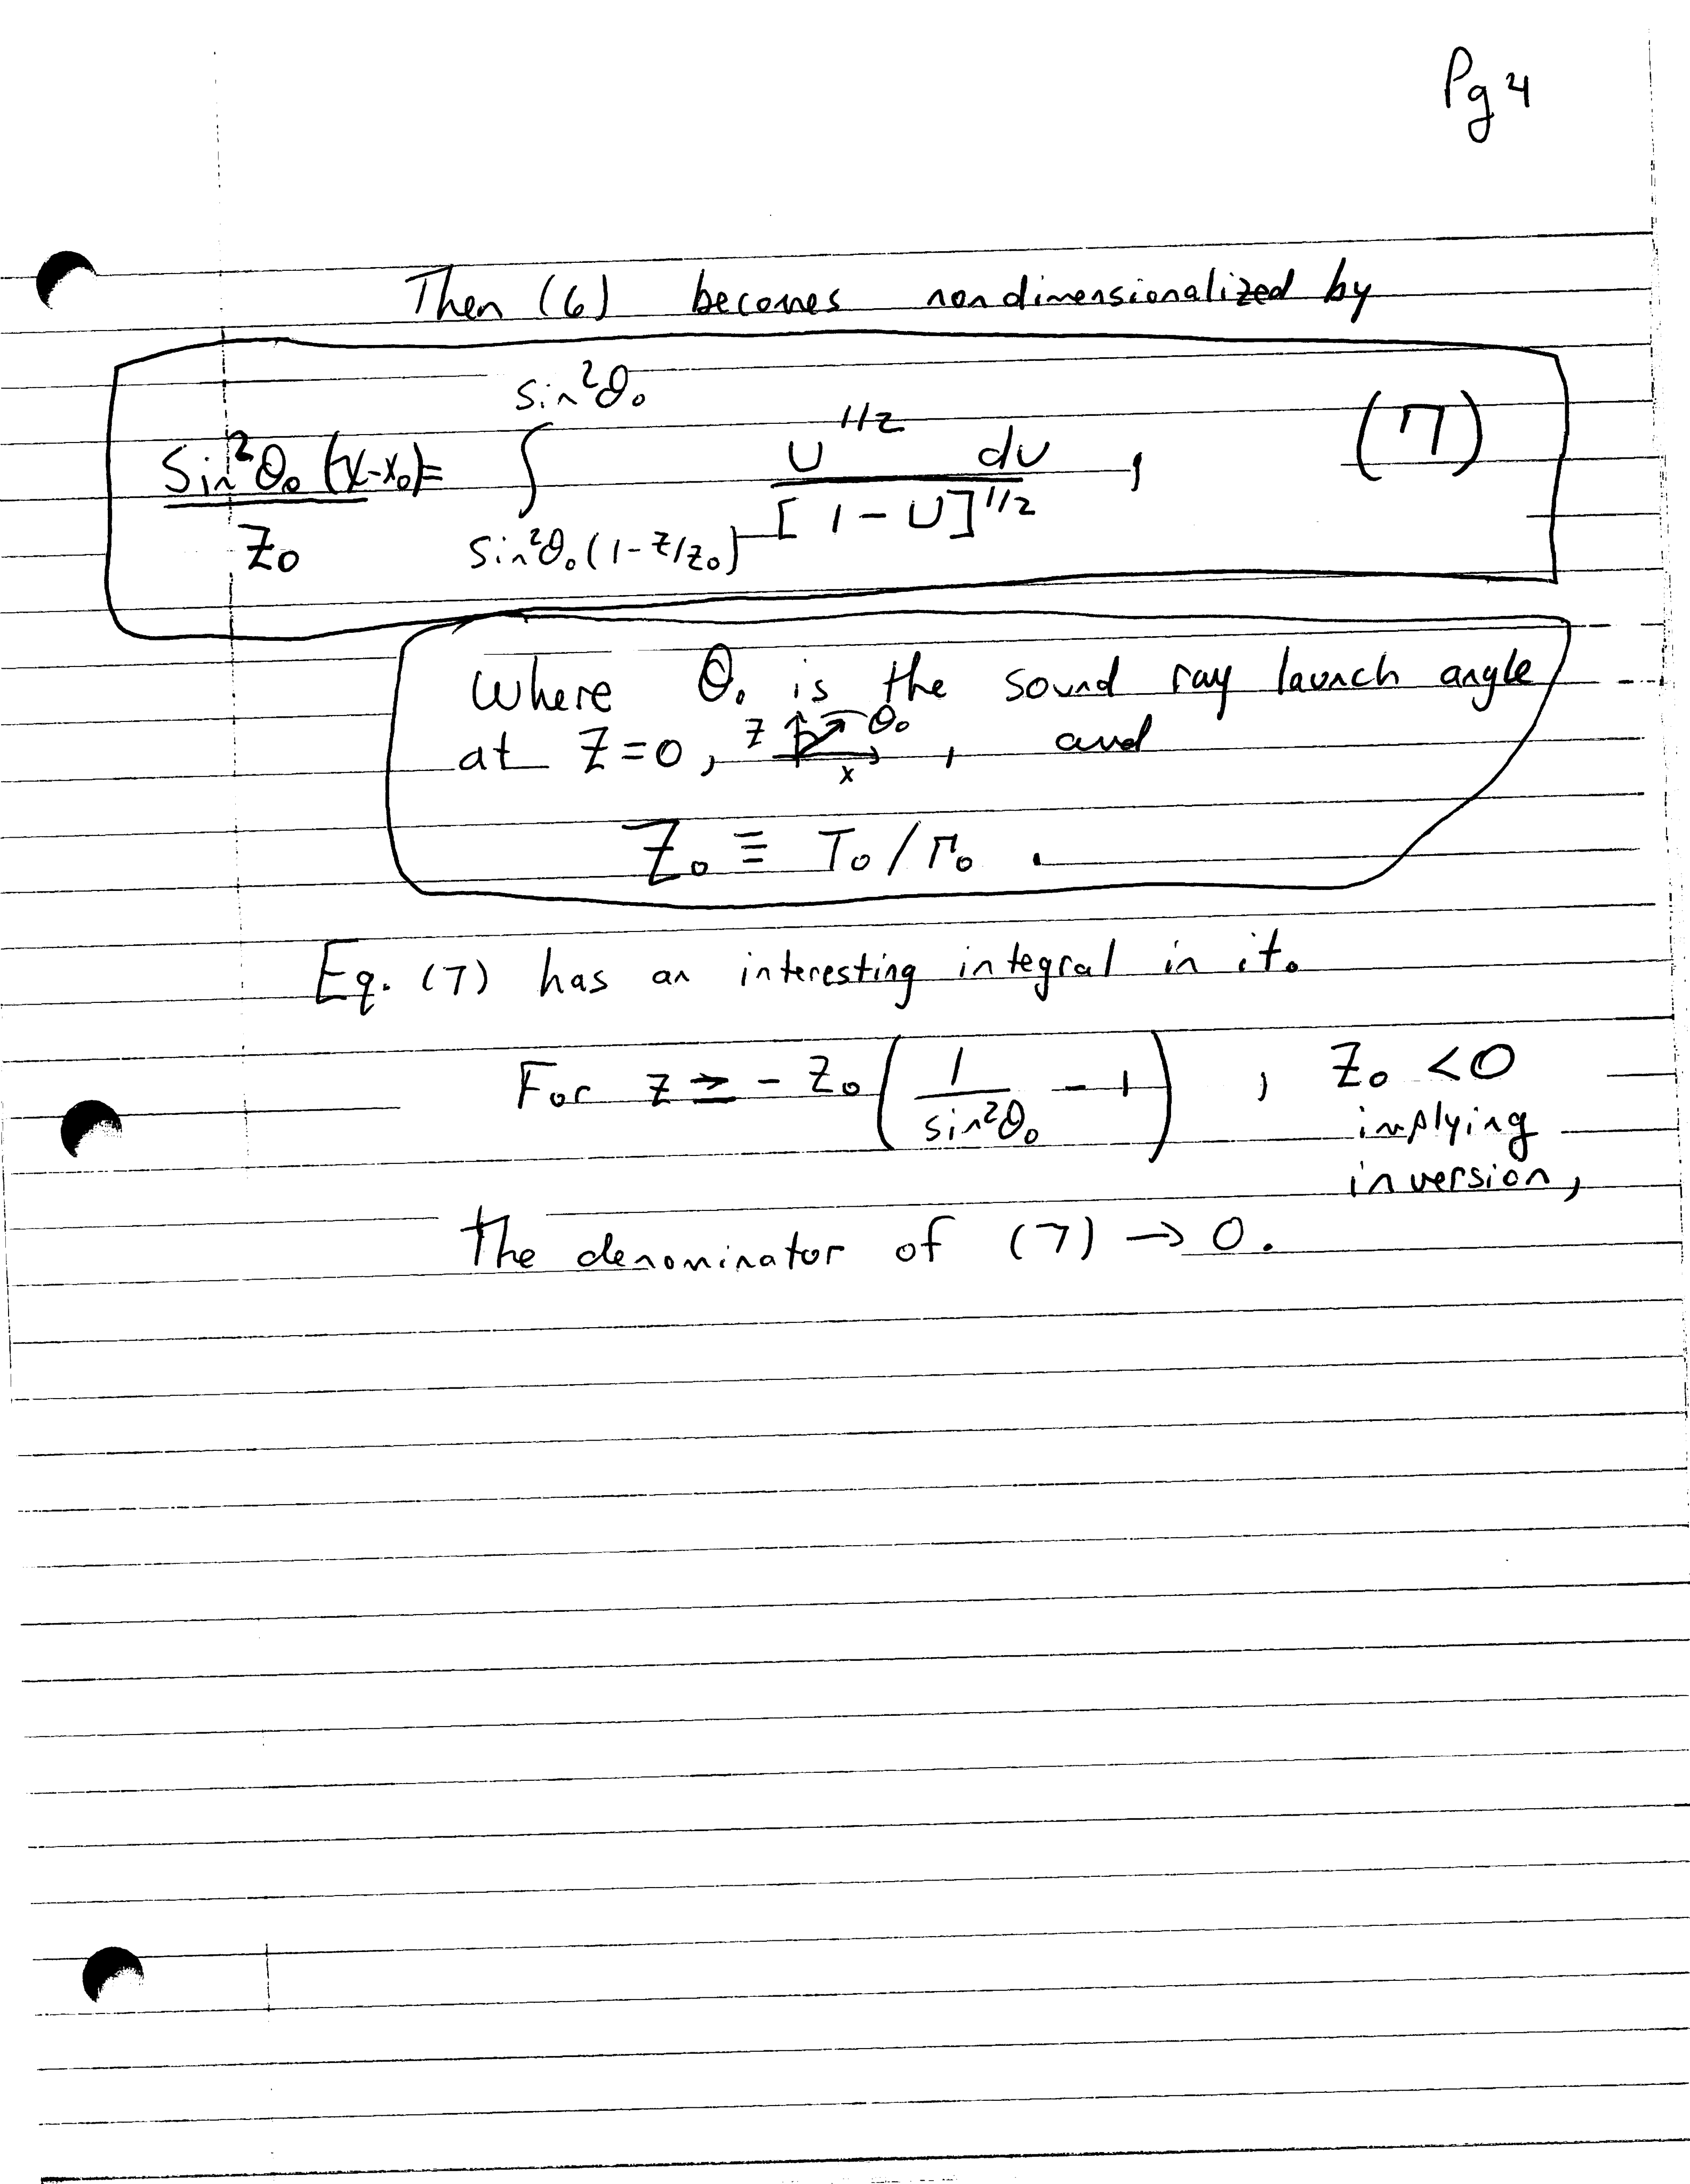 Pg 4
Then (6) becomes nondimensionalized by
sin²θ₀
Sin²θ₀ (x-x₀) = ∫ U^1/2 dU , (7)
Z₀ sin²θ₀(1-z/z₀) [1-U]^1/2
Where θ₀ is the sound ray launch angle
at Z=0, Z θ₀ x , and
Z₀ ≡ T₀/Γ₀ .
Eq. (7) has an interesting integral in it.
For z ≥ - z₀ ( 1/sin²θ₀ - 1 ) , Z₀ <0
implying
inversion,
the denominator of (7) → 0.